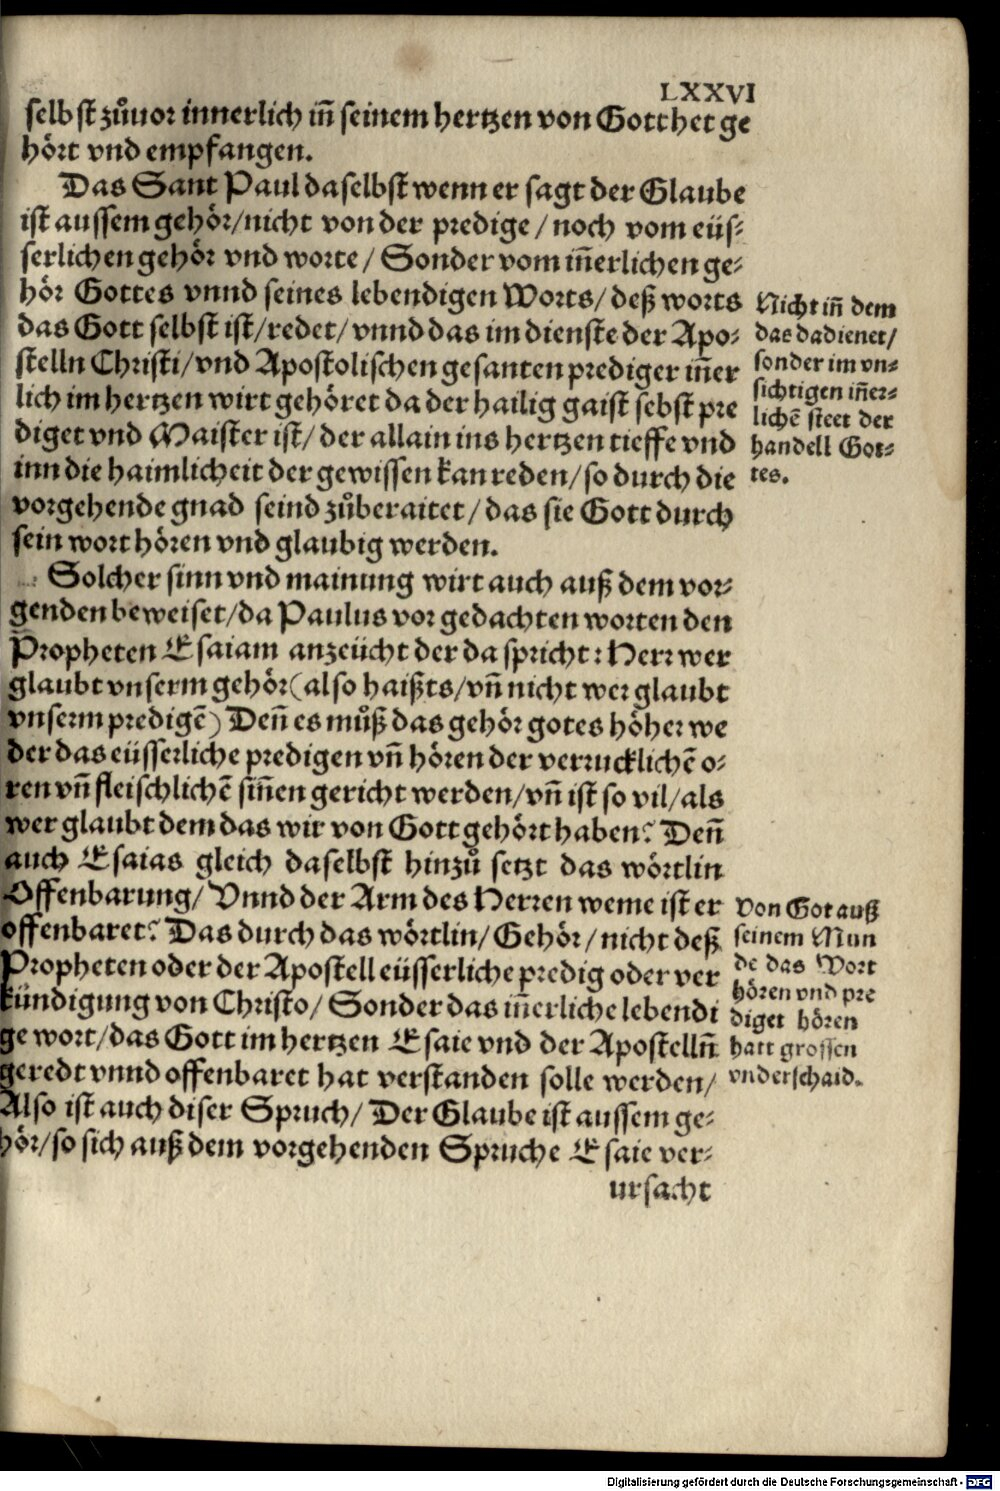 LXXVI
selbst zůuor innerlich iñ seinem hertzen von Gott het ge
hört vnd empfangen.
Das Sant Paul daselbst wenn er sagt der Glaube
ist aussem gehör/nicht von der predige/noch vom eüs⸗
serlichen gehör vnd worte/Sonder vom iñerlichen ge⸗
hör Gottes vnnd seines lebendigen Worts/deß worts
das Gott selbst ist/redet/vnnd das im dienste der Apo⸗
stelln Christi/vnd Apostolischen gesanten prediger iñer
lich im hertzen wirt gehöret da der hailig gaist sebst pre
diget vnd Maister ist/der allain ins hertzen tieffe vnd
inn die haimlicheit der gewissen kan reden/so durch die
vorgehende gnad seind zůberaitet/das sie Gott durch
sein wort hören vnd glaubig werden.
Solcher sinn vnd mainung wirt auch auß dem vor⸗
genden beweiset/da Paulus vor gedachten worten den
Propheten Esaiam anzeücht der da spricht: Herr wer
glaubt vnserm gehör(also haißts/vñ nicht wer glaubt
vnserm predigẽ) Deñ es můß das gehör gotes höher we
der das eüsserliche predigen vñ hören der verrucklichẽ o⸗
ren vñ fleischlichẽ siñen gericht werden/vñ ist so vil/als
wer glaubt dem das wir von Gott gehört haben? Deñ
auch Esaias gleich daselbst hinzů setzt das wörtlin
Offenbarung/Vnnd der Arm des Herren weme ist er
offenbaret? Das durch das wörtlin/Gehör/nicht deß
Propheten oder der Apostell eüsserliche predig oder ver
kündigung von Christo/Sonder das iñerliche lebendi
ge wort/das Gott im hertzen Esaie vnd der Apostellñ
geredt vnnd offenbaret hat verstanden solle werden/
Also ist auch diser Spruch/Der Glaube ist aussem ge⸗
hör/so sich auß dem vorgehenden Spruche Esaie ver⸗
ursacht
Nicht iñ dem
das da dienet/
sonder im vn⸗
sichtigen iñer⸗
lichẽ steet der
handell Got⸗
tes.
Von Got auß
seinem Mun
de das Wort
hören vnd pre
diget hören
hatt grossen
vnderschaid.
Digitalisierung gefördert durch die Deutsche Forschungsgemeinschaft - DFG